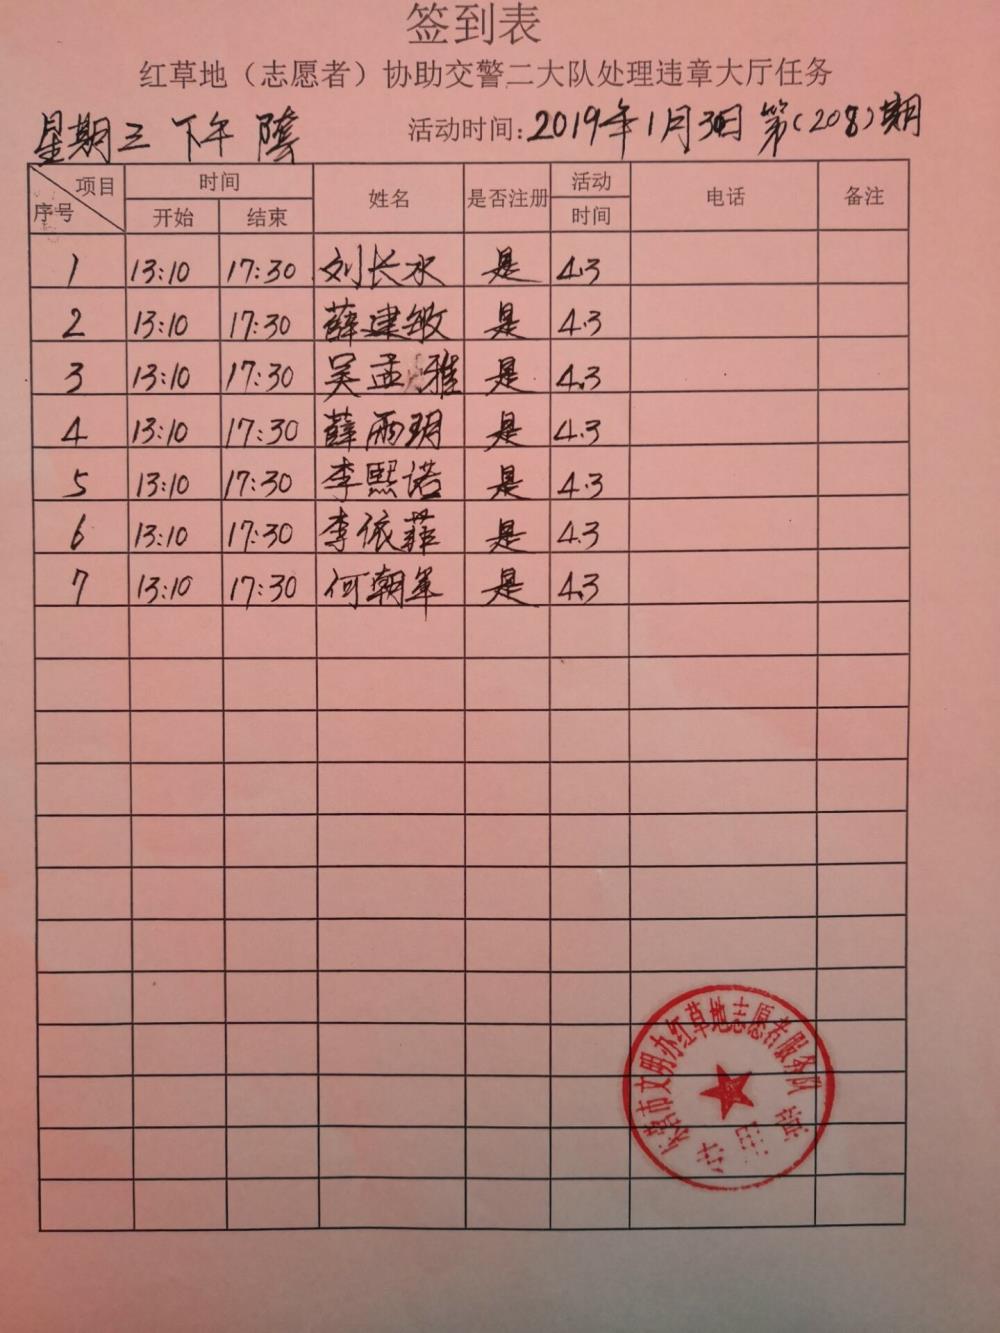 签到表
红草地（志愿者）协助交警二大队处理违章大厅任务
星期三 下午 阴 活动时间：2019年1月30日 第(208)期
项目 序号 时间 姓名 是否注册 活动时间 电话 备注
开始 结束
1 13:10 17:30 刘长水 是 4.3
2 13:10 17:30 薛建敏 是 4.3
3 13:10 17:30 吴孟雅 是 4.3
4 13:10 17:30 薛雨玥 是 4.3
5 13:10 17:30 李熙诺 是 4.3
6 13:10 17:30 李依菲 是 4.3
7 13:10 17:30 何朝军 是 4.3
市文明办红草地志愿者服务队
专用章